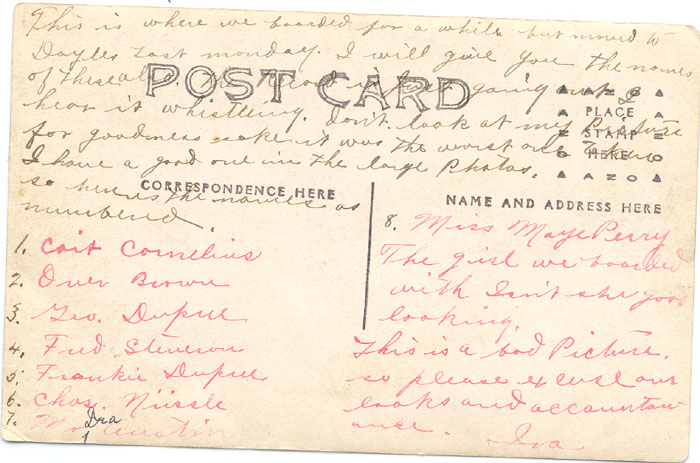 This is where we boarded for a while but moved to
Doyles last monday. I will give you the names
of these all. The Record is just going out I
hear it whistling. Don't look at my Picture
for goodness sake it was the worst one taken
I have a good one in the large Photos.
so here is the names as
numbered.
POST CARD
AZO
PLACE
STAMP
HERE
AZO
CORRESPONDENCE HERE
NAME AND ADDRESS HERE
1. Coit Cornelius
2. Over Brown
3. Geo. Dupree
4. Fred Steveson
5. Frankie Dupree
6. Chas. Nüssle
7.
Ira
8. Miss Maye Perry
The girl we boarded
with Isn't she good
looking.
This is a bad Picture.
so please excuse our
looks and
ance. Iva